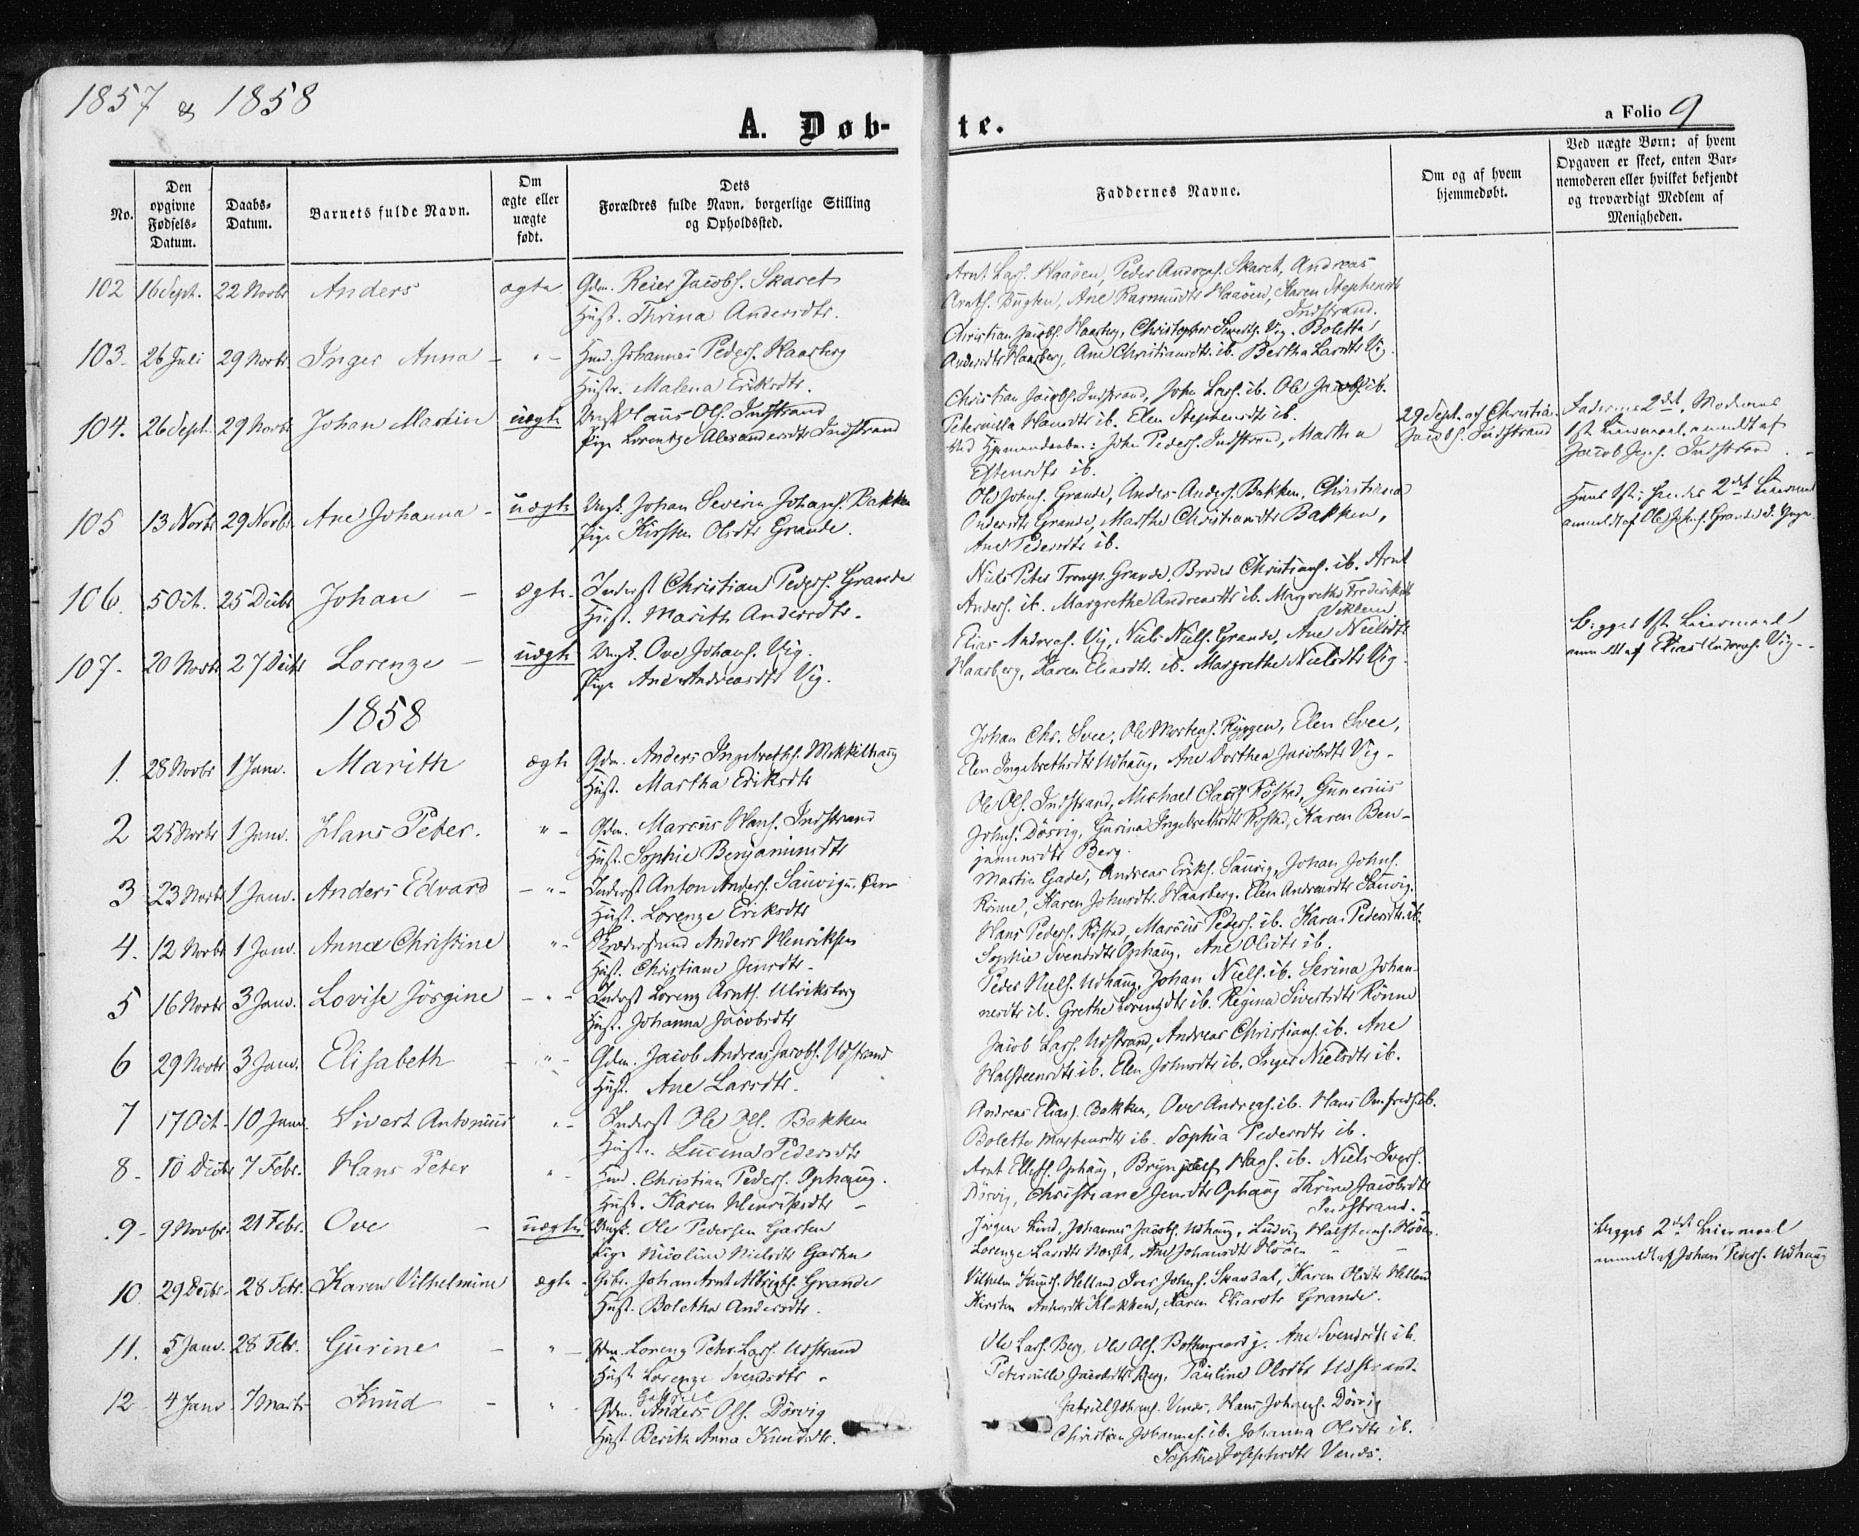 1857 & 1858
A. Døb-
te.
a Folio 9
No.
Den opgivne Fødsels-Datum.
Daabs-Datum.
Barnets fulde Navn.
Om ægte eller uægte født.
Dets Forældres fulde Navn, borgerlige Stilling og Opholdssted.
Faddernes Navne.
Om og af hvem hjemmedøbt.
Ved uægte Børn: af hvem Opgaven er skeet, enten Barnemoderen eller hvilket bekjendt og troværdigt Medlem af Menigheden.
102 16 Sept. 22 Novbr Anders ægte Gdm. Reier Jacobs. Skaret
Hust. Thrina Andersdtr.
Arnt Lars. Haaøen, Peder Andreas. Skaret, Andreas
Arnts. Ane Rasmusdtr Haaøen, Karen Stephensdtr
Indstrand.
103. 26 Juli 29 Novbr Inger Anna - " - Huusm. Johannes Peders. Haarberg
Hustr. Malena Eriksdtr.
Christian Jacobs. Haarberg, Christopher Siverts. Vig. Boletta
Andersdtr Haarberg, Ane Christiansdtr ib. Bertha Larsdtr Vig.
104. 26 Sept. 29 Novbr Johan Martin uægte Ungk. Claus Ols. Indstrand
Pige Lorentze Alexandersdtr Indstrand
Christian Jacobs. Indstrand, John Lars. ib. Ole Jacobs. ib.
Peternilla Hansdtr ib. Elen Stephensdtr ib.
Ved Hjemmedaaben: John Peders. Indstrand, Martha
Estensdtr ib.
29 Sept. af Christian
Jacobs. Indstrand
Faderens 2det, Moderens
1ste Leiermaal, anmeldt af
Jacob Jens. Indstrand.
105 13 Novbr 29 Novbr Ane Johanna - uægte Ungk. Johan Severin Johans. Bakken
Pige Kirsten Olsdtr Grande.
Ole Johns. Grande, Anders Anders. Bakken, Christiana
Andersdtr Grande, Marthe Christiansdtr Bakken,
Ane Pedersdtr ib.
Hans 1ste; hendes 2det Leiermaal
anmeldt af Ole Johns. Grande
106. 5 Oct. 25 Decbr Johan - ægte. Inderst Christian Peders. Grande
Hust. Marith Andersdtr.
Niels Peter Grande, Broder Christians. ib. Arnt
Anders. ib. Margrethe Andreasdtr ib. Margrethe Frederiksdtr
Viklem
107. 20 Novbr 27 Decbr Lorenze - uægte Ungk. Ove Johans. Vig.
Pige Ane Andreasdtr Vig.
Elias Andreas. Vig, Niels Niels. Grande, Ane Nielsdtr
Haarberg, Karen Eliasdtr. ib. Margrethe Nielsdtr Vig.
Begges 1ste Leiermaal
anmeldt af Elias Andreas. Vig.
1858
1. 28 Novbr 1 Janv. Marith ægte Gdm. Anders Ingebrethts. Mikkelhaug
Hust. Martha Eriksdtr
Johan Chr. Svee, Ole Mortens. Ryggen, Elen Svee,
Elen Ingebrethsdtr Udhaug, Ane Dorthea Jacobsdtr Vig.
2 25 Novbr 1 Janv. Hans Peter. " - Gdm. Marcus Hans. Indstrand
Hust. Sophie Benjaminsdtr
Ole Ols. Indstrand, Michael Røstad, Gunerius
Johns. Dørvig, Gurina Ingebrethsdtr Røstad, Karen Ben-
jaminsdtr Berg.
3 23 Novbr 1 Janv. Anders Edvard - " - Inderst Anton Anders. Sauvig
Hust. Lorenze Eriksdtr
Martin Gade, Andreas Eriks. Sauvig, Johan Johns.
Rønne, Karen Johnsdtr. Haarberg. Elen Andreasdtr Sauvig.
4. 12 Novbr 1 Janv. Anna Christine " - Anders Henriksen
Hust. Christiane Jensdtr.
Hans Peders. Røstad, Marcus Peders. ib. Karen Pedersdtr ib.
Sophie Svendsdtr Ophaug, Ane Olsdtr ib.
5 16 Novbr 3 Janv. Lovise Jörgine - " - Inderst Lorenz Arnts. Ulriksborg
Hust. Johanna Jacobsdtr
Peder Niels. Udhaug, Johan Niels. ib. Serina Johan-
nesdtr ib. Grethe Lorenzdtr ib. Regina Sivertsdtr Rønne
6 29 Novbr 3 Janv. Elisabeth - " - Gdm. Jacob Andreas Jacobs. Udstrand
Hust. Ane Larsdtr.
Jacob Lars. Udstrand, Andreas Christians. ib. Ane
Halsteensdtr ib. Elen Johnsdtr ib. Inger Nielsdtr ib.
7 17 Oct. 10 Janv. Sivert Antonius " - Inderst Ole Ols. Bakken
Hustr. Lucina Pedersdtr
Andreas Elias. Bakken, Ove Andreas. ib. Hans Omfreds. ib.
Bolette Mortensdtr ib. Sophia Pedersdtr ib.
8 - 10 Decbr 7 Febr. Hans Peter " - Huusm. Christian Peders. Ophaug.
Hust. Karen Henriksdtr -
Arnt Ellefs. Ophaug, Brynjulf Hans. ib. Niels Ivers.
Dørvig, Christiane Jensdtr Ophaug Thrine Jacobsdtr
Indstrand.
9 - 9 Novbr. 21 Febr. Ove - uægte Ungk. Ole Pedersen Garten
Pige Nicoline Nielsdtr Garten
Jörgen Lund, Johannes Jacobs. Udhaug, Ludvig Halstens. Høøen,
Lorenze Larsdtr Ane Johansdtr Høøen
Begges 2det Leiermaal
anmeldt af Johan Peders. Udhaug
10. 29 Decbr. 28 Febr. Karen Vilhelmine ægte - Gbr. Johan Arnt Albrigts. Grande
Hust. Boletha Andersdtr.
Vilhelm Knuds. Helland, Iver Johns. Skardal, Karen Olsdtr Helland
Kirsten Andersdtr Klakken, Karen Eliasdtr Grande.
11. 5 Janv. 28 Febr. Gurine - " - Gdm. Lorenz Peter Lars. Udstrand
Hust. Lorenze Svendsdtr.
Ole Lars. Berg, Ole Ols. Bottengaard, Ane Svendsdtr ib.
Peternille Jacobsdtr Berg, Pauline Olsdtr Udstrand.
12 4 Janv. 7 Marts Knud - " - Gdm. Anders Ols. Dørvig
Gabriel
Hust. Berith Anna Knudsdtr.
Gabriel Johns. Hans Johans. Dørvig
Christian Johannes. ib. Johanna Olsdtr ib.
Sophie Josephsdtr